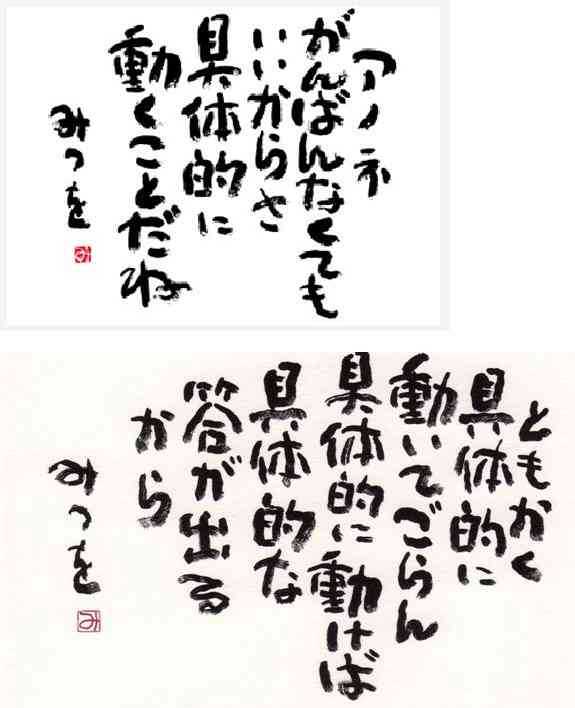 アノネ
がんばんなくても
いいからさ
具体的に
動くことだね
みつを
み
ともかく
具体的に
動いてごらん
具体的に動けば
具体的な
答が出る
から
みつを
み